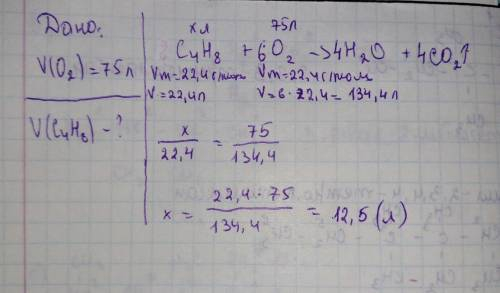 Дано:
V(O₂) = 75л
V(C₄H₈) - ?
x л 75л
C₄H₈ + 6O₂ -> 4H₂O + 4CO₂↑
Vm=22,4 л/моль Vm=22,4 л/моль
V=22,4л V=6·22,4=134,4л
x/22,4 = 75/134,4
x = 22,4·75/134,4 = 12,5 (л)